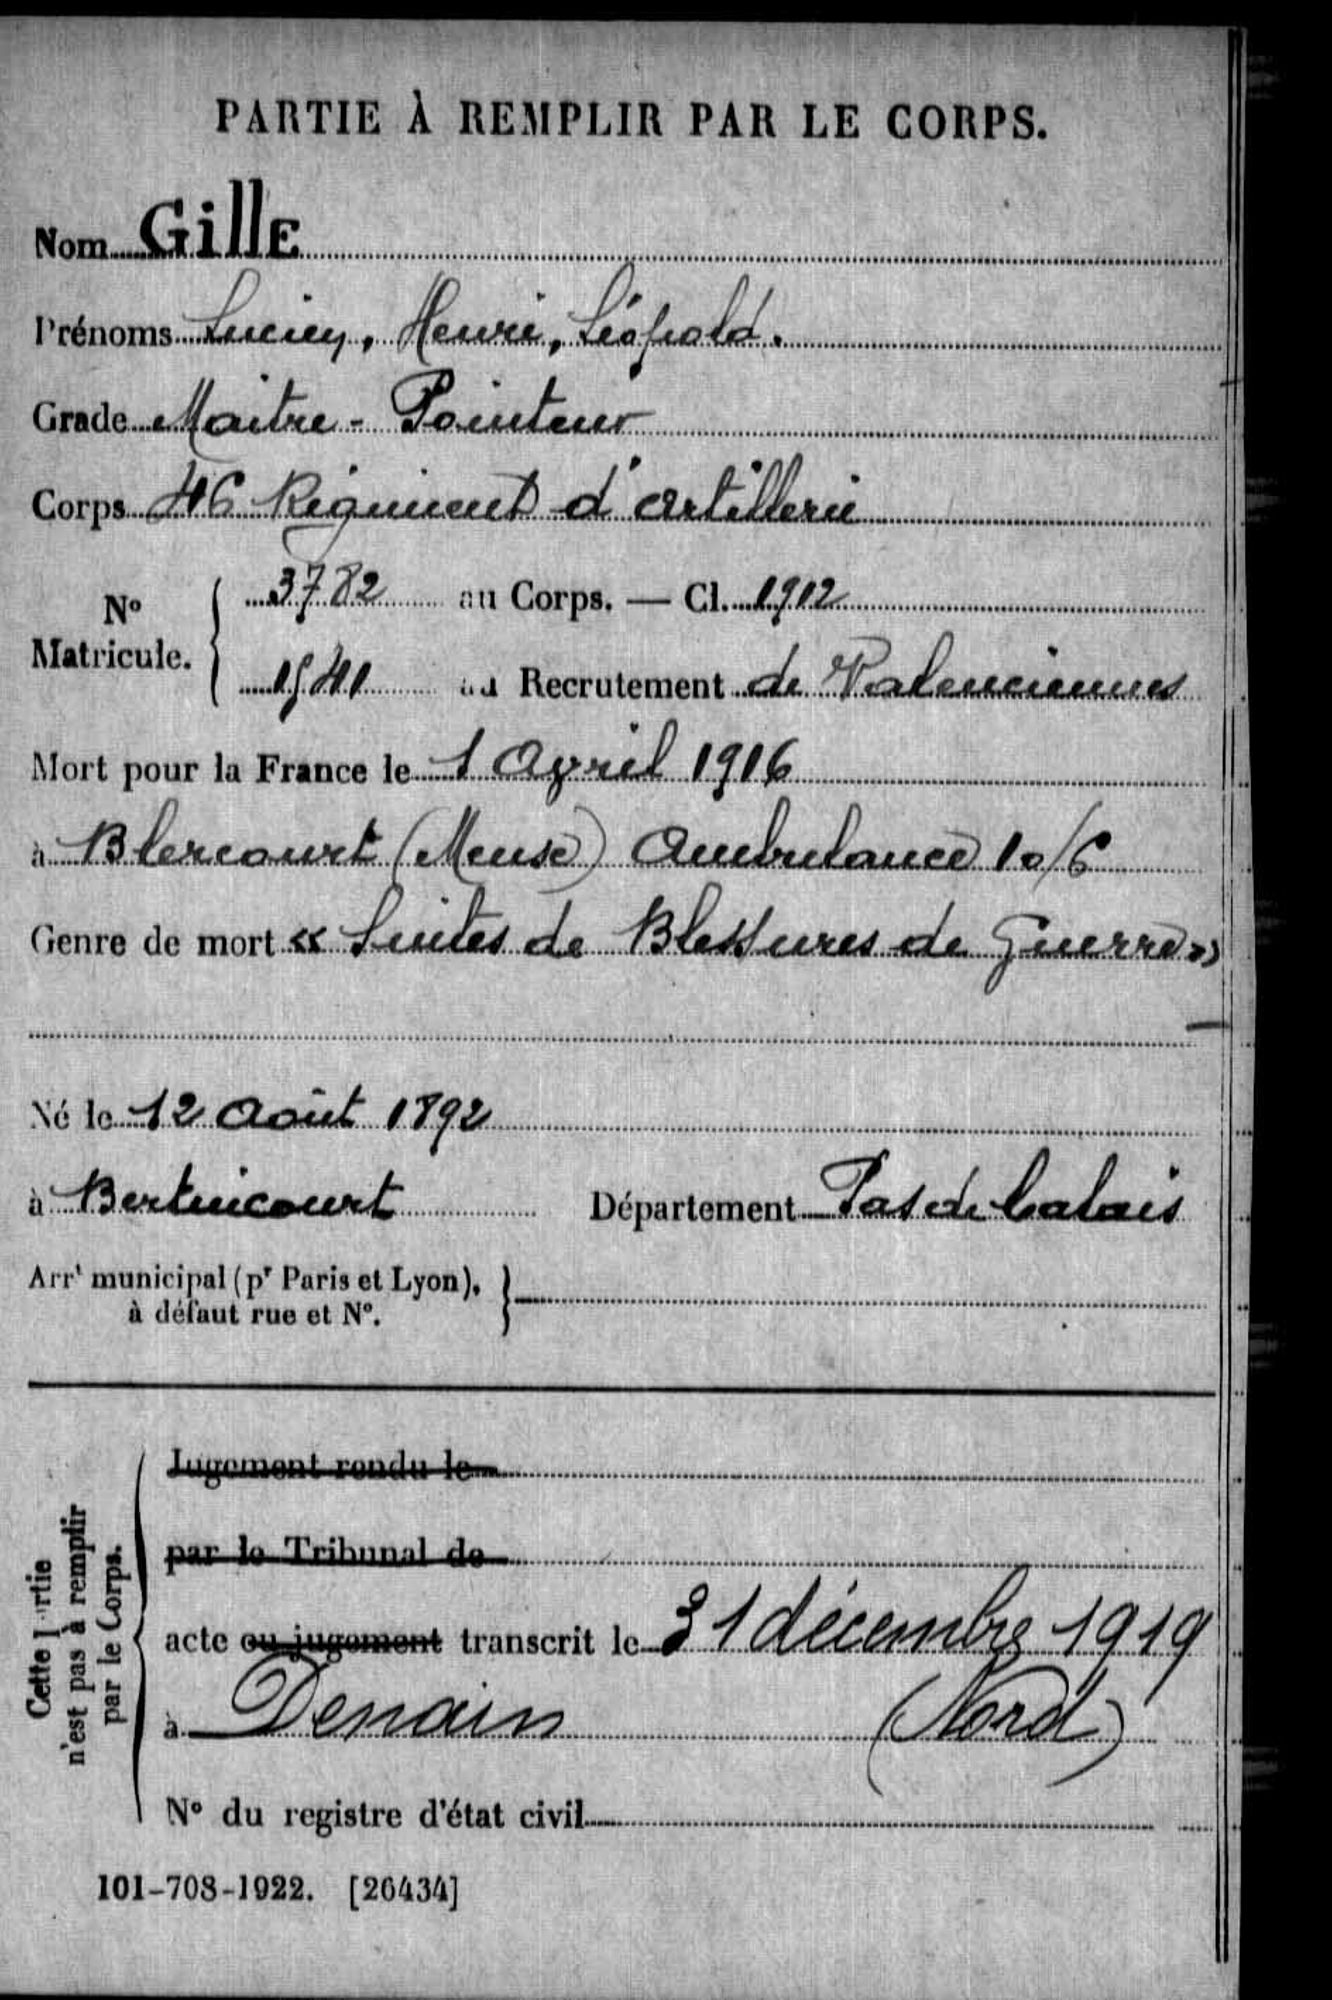 PARTIE À REMPLIR PAR LE CORPS.
Nom GillE
Prénoms Lucien, Henri, Léopold.
Grade Maitre - Pointeur
Corps 46 Régiment d'artillerie
N° Matricule. 3782 au Corps. — Cl. 1912
1541 au Recrutement de Valenciennes
Mort pour la France le 1 Avril 1916
à Blercourt (Meuse) Ambulance 10/6
Genre de mort « Suites de Blessures de Guerre »
Né le 12 Août 1892
à Bertincourt Département Pas de Calais
Arrt municipal (pr Paris et Lyon),
à défaut rue et N°.
Cette partie
n'est pas à remplir
par le Corps.
Jugement rendu le
par le Tribunal de
acte ou jugement transcrit le 31 décembre 1919
à Denain (Nord)
N° du registre d'état civil
101-708-1922. [26434]